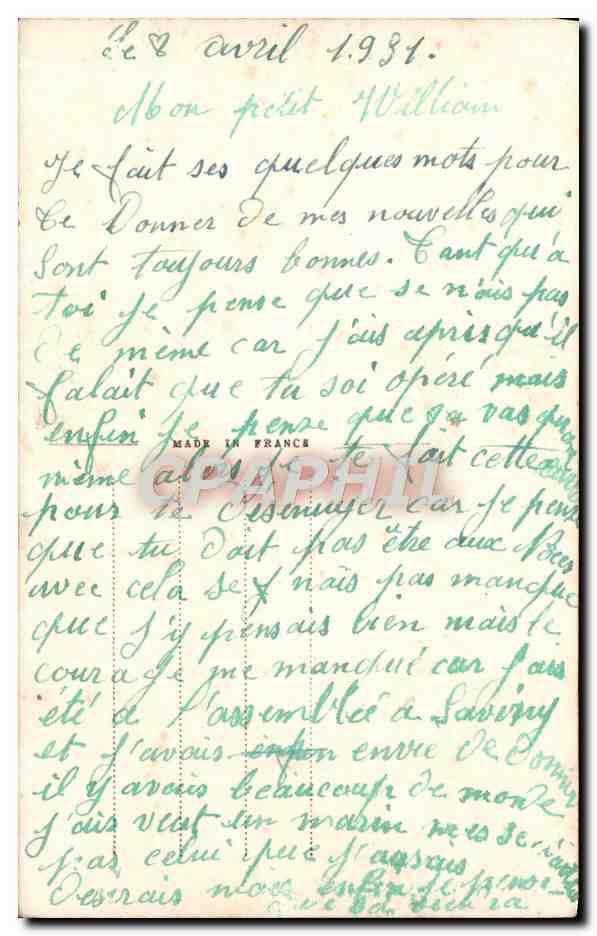 Le 8 avril 1931.
Mon petit William
Je fait ses quelques mots pour
te Donner de mes nouvelles qui
sont toujours bonnes. Tant qu'a
toi je pense que se n'ais pas
de même car j'ais apris qu'il
falait que tu soi opéré mais
enfin je pense que sa vas quan
MADE IN FRANCE
même alors je te fait cette
pour te désennuyer car je pense
que tu doit pas être aux Noces
avec cela se nais pas manque
que j'y pensais bien mais le
courage me manqué car j'ais
été a l'assemblée a Savigny
et j'avais envie de Donner
il y avais beaucoup de monde
j'ais veut un marin mes se n'ai
pas celui que j'aurais
desirais mais enfin je pense
que sa viendra
CPAPHIL